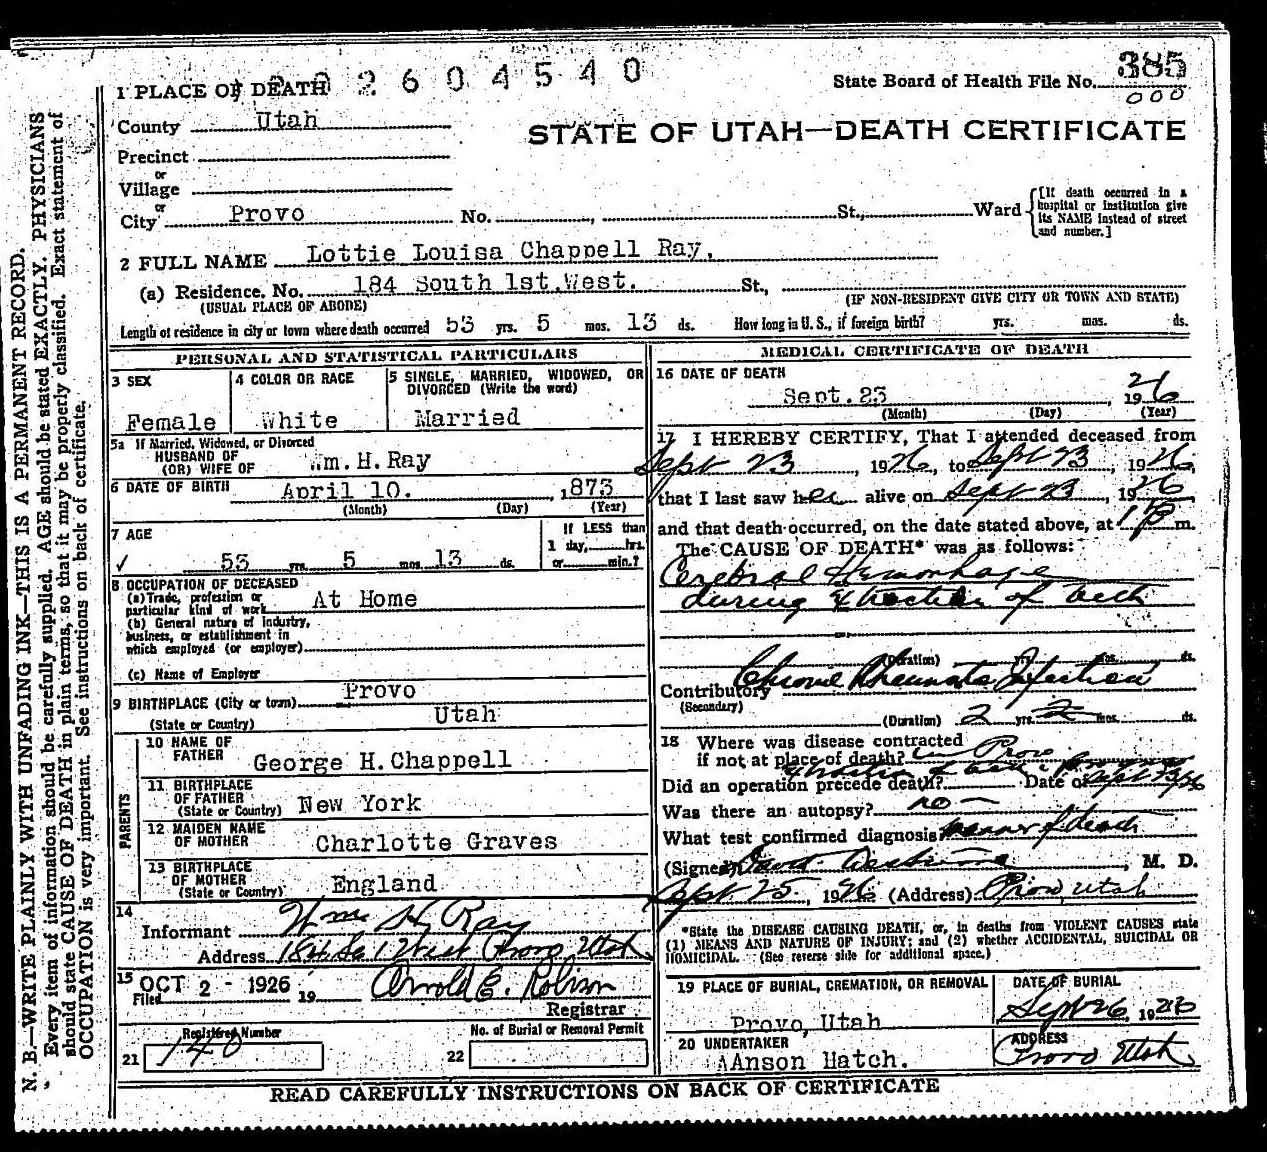 1 PLACE OF DEATH 2604540
State Board of Health File No. 385
000
County Utah
STATE OF UTAH—DEATH CERTIFICATE
Precinct
or
Village
or
City Provo No. , St., Ward
[If death occurred in a hospital or institution give its NAME instead of street and number.]
2 FULL NAME Lottie Louisa Chappell Ray,
(a) Residence. No. 184 South 1st.West. St.,
(USUAL PLACE OF ABODE) (IF NON-RESIDENT GIVE CITY OR TOWN AND STATE)
Length of residence in city or town where death occurred 53 yrs. 5 mos. 13 ds. How long in U. S., if foreign birth? yrs. mos. ds.
PERSONAL AND STATISTICAL PARTICULARS
3 SEX
Female
4 COLOR OR RACE
White
5 SINGLE, MARRIED, WIDOWED, OR DIVORCED (Write the word)
Married
5a If Married, Widowed, or Divorced
HUSBAND OF
(OR) WIFE OF Wm. H. Ray
6 DATE OF BIRTH April 10. , 1873
(Month) (Day) (Year)
7 AGE
53 yrs. 5 mos. 13 ds.
If LESS than
1 day, hrs.
or min.?
8 OCCUPATION OF DECEASED
(a) Trade, profession or
particular kind of work At Home
(b) General nature of industry,
business, or establishment in
which employed (or employer)
(c) Name of Employer
9 BIRTHPLACE (City or town) Provo
(State or Country) Utah
PARENTS
10 NAME OF
FATHER George H. Chappell
11 BIRTHPLACE
OF FATHER
(State or Country) New York
12 MAIDEN NAME
OF MOTHER Charlotte Graves
13 BIRTHPLACE
OF MOTHER
(State or Country) England
14
Informant Wm H Ray
Address 184 So 1 West Provo Utah
15 OCT 2 - 1926
Filed 19 Arnold E. Robison
Registrar
Registered Number
21 140
No. of Burial or Removal Permit
22
MEDICAL CERTIFICATE OF DEATH
16 DATE OF DEATH
Sept. 23 , 1926
(Month) (Day) (Year)
17 I HEREBY CERTIFY, That I attended deceased from
Sept 23 , 1926, to Sept 23, 1926,
that I last saw her alive on Sept 23, 1926
and that death occurred, on the date stated above, at 1 P m.
The CAUSE OF DEATH* was as follows:
Cerebral Hemorhage
during extraction of teeth
(Duration) yrs. mos. ds.
Contributory Chronic Rheumatic Infection
(Secondary)
(Duration) 2 yrs. 2 mos. ds.
18 Where was disease contracted
if not at place of death? in Provo
Did an operation precede death? Date of Sept 23/26
Was there an autopsy? no
What test confirmed diagnosis? manner of death
(Signed) David , M. D.
Sept. 25, 1926 (Address) Provo, Utah
*State the DISEASE CAUSING DEATH, or, in deaths from VIOLENT CAUSES state
(1) MEANS AND NATURE OF INJURY; and (2) whether ACCIDENTAL, SUICIDAL OR
HOMICIDAL. (See reverse side for additional space.)
19 PLACE OF BURIAL, CREMATION, OR REMOVAL
Provo, Utah
DATE OF BURIAL
Sept 26, 1926
20 UNDERTAKER
Anson Hatch.
ADDRESS
Provo Utah
READ CAREFULLY INSTRUCTIONS ON BACK OF CERTIFICATE
N. B.—WRITE PLAINLY WITH UNFADING INK—THIS IS A PERMANENT RECORD.
Every item of information should be carefully supplied. AGE should be stated EXACTLY. PHYSICIANS
should state CAUSE OF DEATH in plain terms, so that it may be properly classified. Exact statement of
OCCUPATION is very important. See instructions on back of certificate.